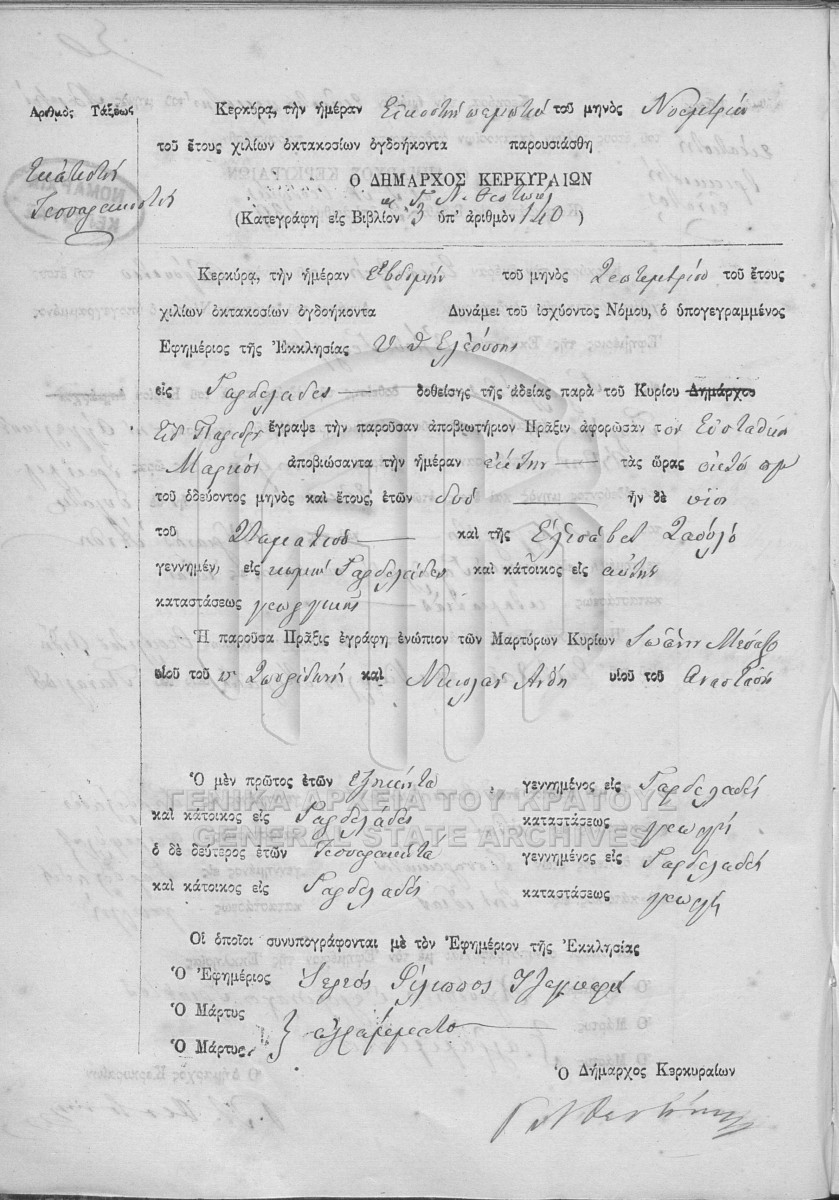 Αριθμὸς Τάξεως
Ἑκατοστὴ
Τεσσαρακοστὴ
Κερκύρᾳ, τὴν ἡμέραν Εἰκοστὴ πέμπτη τοῦ μηνὸς Νοεμβρίου
τοῦ ἔτους χιλίων ὀκτακοσίων ὀγδοήκοντα παρουσιάσθη
Ὁ ΔΗΜΑΡΧΟΣ ΚΕΡΚΥΡΑΙΩΝ
(Κατεγράφη εἰς Βιβλίον 3 ὑπ' ἀριθμὸν 140 )
Κερκύρᾳ, τὴν ἡμέραν Ἑβδόμην τοῦ μηνὸς Σεπτεμβρίου τοῦ ἔτους
χιλίων ὀκτακοσίων ὀγδοήκοντα Δυνάμει τοῦ ἰσχύοντος Νόμου, ὁ ὑπογεγραμμένος
Ἐφημέριος τῆς Ἐκκλησίας Υ Θ Ελεούσης
εἰς Γαρδελάδες δοθείσης τῆς ἀδείας παρὰ τοῦ Κυρίου Δημάρχου
Εἰδ Παρέδρου ἔγραψε τὴν παροῦσαν ἀποβιωτήριον Πρᾶξιν ἀφορῶσαν τὸν Εὐστάθιον
Μαρκὸς ἀποβιώσαντα τὴν ἡμέραν ἕκτην τὰς ὥρας ὀκτὼ πμ
τοῦ ὁδεύοντος μηνὸς καὶ ἔτους, ἐτῶν δύο ἦν δὲ υἱὸς
τοῦ Σταματίου καὶ τῆς Ἐλισάβετ
γεννημέν, εἰς κωμην Γαρδελάδες καὶ κάτοικος εἰς αὐτὴν
καταστάσεως γεωργικῆς
Ἡ παροῦσα Πρᾶξις ἐγράφη ἐνώπιον τῶν Μαρτύρων Κυρίων Ἰωάννη
υἱοῦ τοῦ π Σπυρίδωνος καὶ Νικολάου Ἄνθη υἱοῦ τοῦ Ἀναστάση
Ὁ μὲν πρῶτος ἐτῶν ἑξήκοντα γεννημένος εἰς Γαρδελάδες
καὶ κάτοικος εἰς Γαρδελάδες καταστάσεως γεωργὸς
ὁ δὲ δεύτερος ἐτῶν Τεσσαράκοντα γεννημένος εἰς Γαρδελάδες
καὶ κάτοικος εἰς Γαρδελάδες καταστάσεως γεωργὸς
Οἱ ὁποῖοι συνυπογράφονται μὲ τὸν Ἐφημέριον τῆς Ἐκκλησίας
Ὁ Ἐφημέριος Ἱερεὺς Φίλιππος
Ὁ Μάρτυς
Ὁ Μάρτυς } ἀγράμματοι
Ὁ Δήμαρχος Κερκυραίων
ΓΕΝΙΚΑ ΑΡΧΕΙΑ ΤΟΥ ΚΡΑΤΟΥΣ
GENERAL STATE ARCHIVES